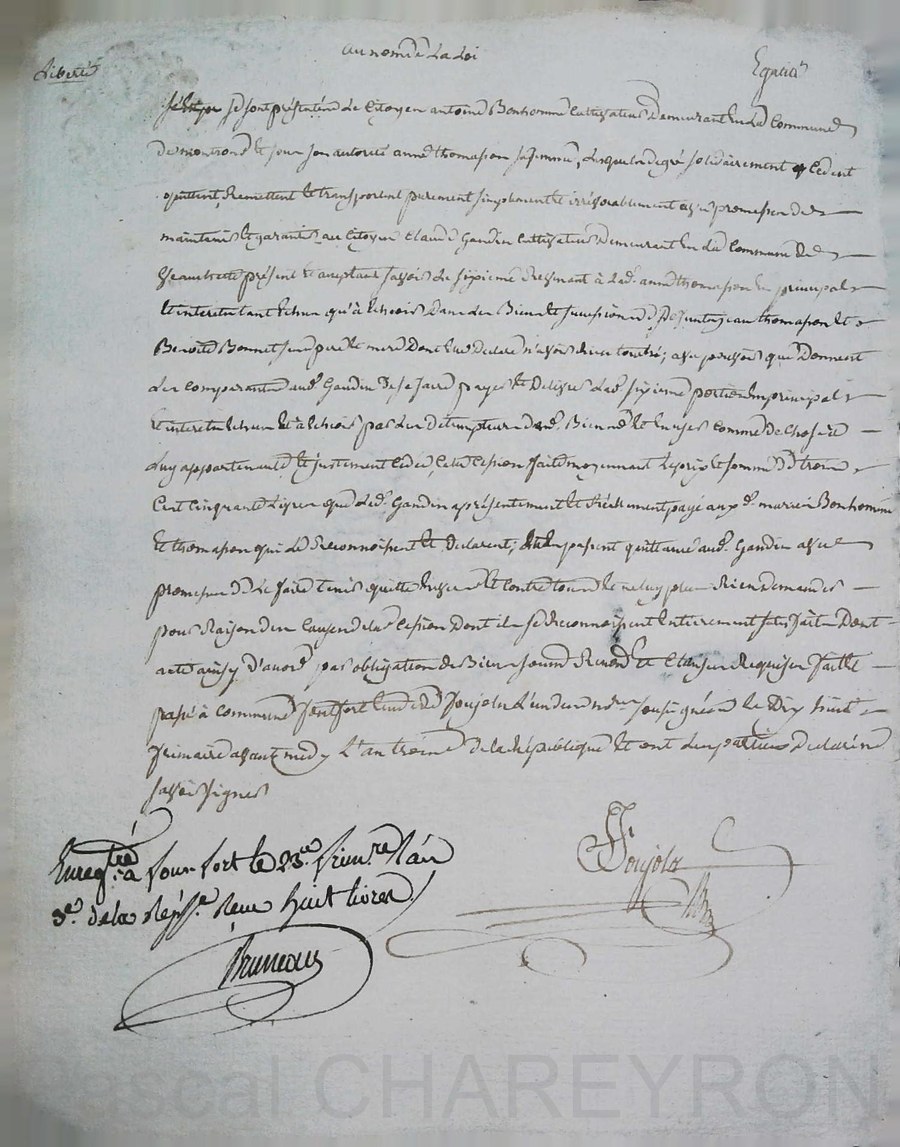 Liberté au nom de La Loi Egalité
se sont présentés Le Citoyen antoine Bonhomme Cultivateur demeurant en La Commune
De montrond et sous son autorité anne thomason sa femme, Lesquels de gré solidairement Cedent
quittent Remettent et transportent purement simplement et irrévocablement avec promesse de
maintenir et garantir au Citoyen Claude Gandin Cultivateur demeurant en La Commune de
présent et acceptant savoir Le sixieme Revenant à Lad. anne thomason en principal
et interets tant échus qu'à échoir dans Les Biens et succession de Defunts jean thomason et
Benoite Bonnet ses pere et mere Dont elle Declare n'avoir rien touché; avec pouvoir que Donnent
Les Comparants aud. Gandin De se faire payer et Delivrer Lad. sixieme portion en principal
et interets échus et à échoir par Les détempteurs desd. Biens et en user Comme de Chose à
Luy appartenante et justement Cédée, Cette Cession faite moyennant Le prix et somme de trois
Cent Cinquante Livres que Led. Gandin a présentement et réellement payé auxd. mariés Bonhomme
et thomason qui Le Reconnoissent et Declarent, passent quittance aud. Gandin avec
promesse de Le faire tenir quitte envers et Contre tous et ne luy plus Rien Demander
pour Raison des Causes de la Cession Dont ils se Reconnoissent Entierement satisfaits Dont
acte ainsy d'accord par obligation de Biens soumis Renond. et Clauses Requises fait et
passé à Commune fontfort Etude de Joujols L'un des nores soussignés Le Dix huit
frimaire avant midy L'an troisieme de la République et ont Les parties Declaré ne
savoir signer
Joujols
Enregtré à fonfort le 23e frimre L'an
3e de la Répque Reçu huit livres
Bruneau
Pascal CHAREYRON